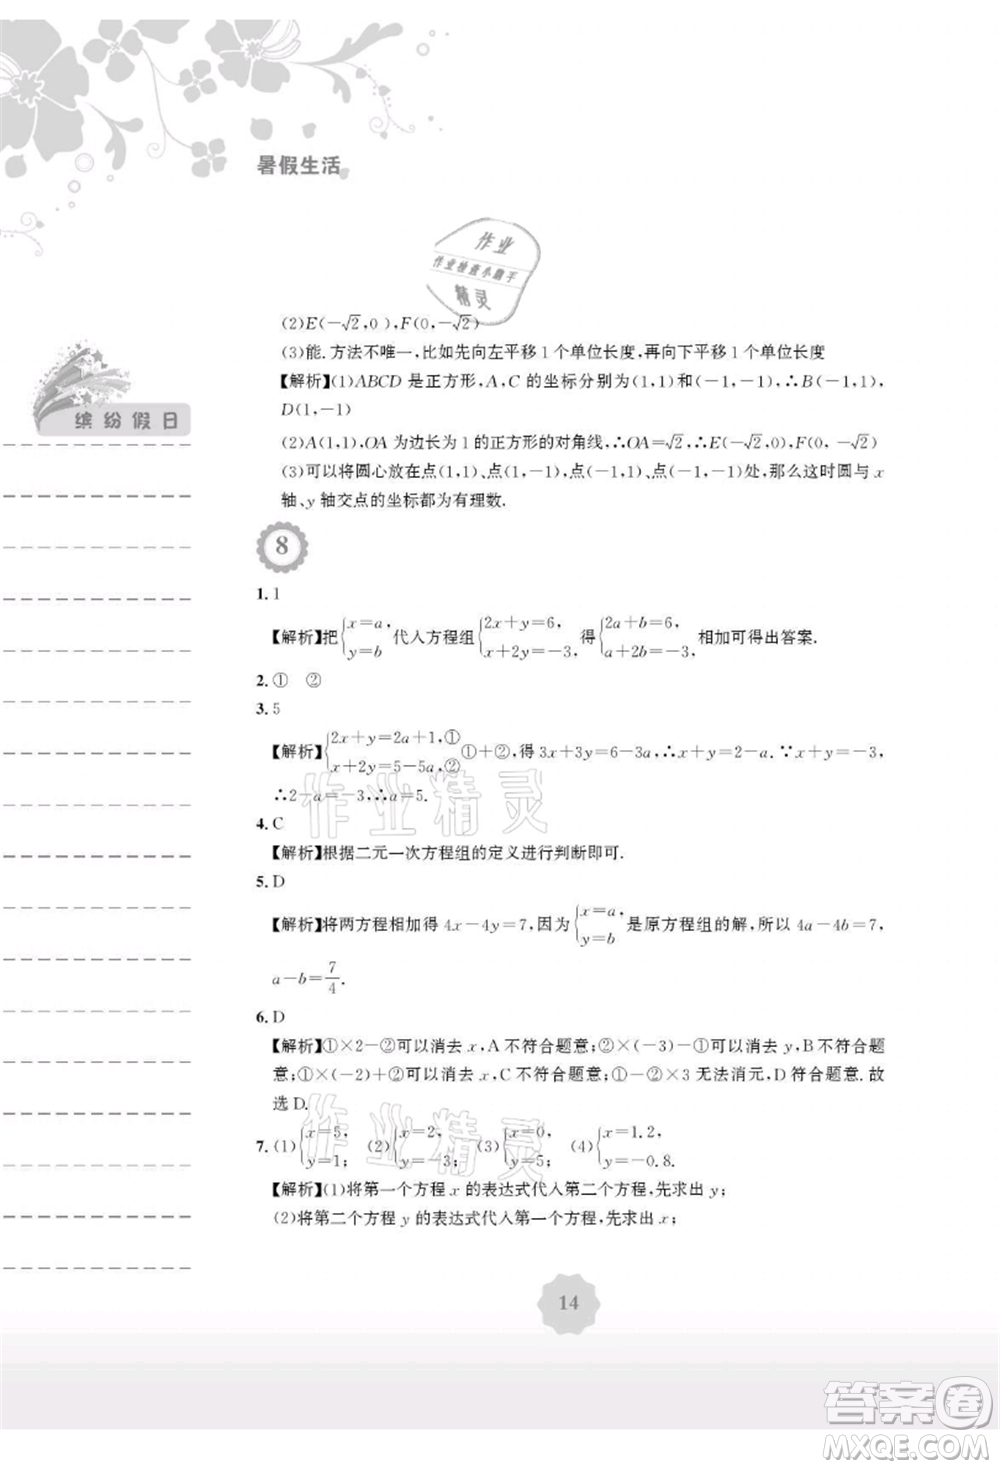 暑假生活
作业
作业检查小助手
精灵
(2)E(−√2,0),F(0,−√2)
(3)能.方法不唯一,比如先向左平移1个单位长度,再向下平移1个单位长度
缤纷假日
【解析】(1)ABCD是正方形,A,C的坐标分别为(1,1)和(−1,−1),∴B(−1,1),
D(1,−1)
(2)A(1,1),OA为边长为1的正方形的对角线,∴OA=√2,∴E(−√2,0),F(0,−√2)
(3)可以将圆心放在点(1,1)、点(1,−1)、点(−1,1)、点(−1,−1)处,那么这时圆与x
轴、y轴交点的坐标都为有理数.
8
1. 1
【解析】把{x=a, y=b 代入方程组{2x+y=6, x+2y=−3, 得{2a+b=6, a+2b=−3, 相加可得出答案.
2. ① ②
3. 5
【解析】{2x+y=2a+1,① x+2y=5−5a,② ①+②,得3x+3y=6−3a,∴x+y=2−a.∵x+y=−3,
∴2−a=−3,∴a=5.
作业精灵
4. C
【解析】根据二元一次方程组的定义进行判断即可.
5. D
【解析】将两方程相加得4x−4y=7,因为{x=a, y=b 是原方程组的解,所以4a−4b=7,
a−b=7/4.
6. D
【解析】①×2−②可以消去x,A不符合题意;②×(−3)−①可以消去y,B不符合题
意;①×(−2)+②可以消去x,C不符合题意;①−②×3无法消元,D符合题意.故
选D.
作业精灵
7. (1){x=5, y=1; (2){x=2, y=−1; (3){x=0, y=5; (4){x=1.2, y=−0.8.
【解析】(1)将第一个方程x的表达式代入第二个方程,先求出y;
(2)将第二个方程y的表达式代入第一个方程,先求出x;
14
答案圈
MXQE.COM